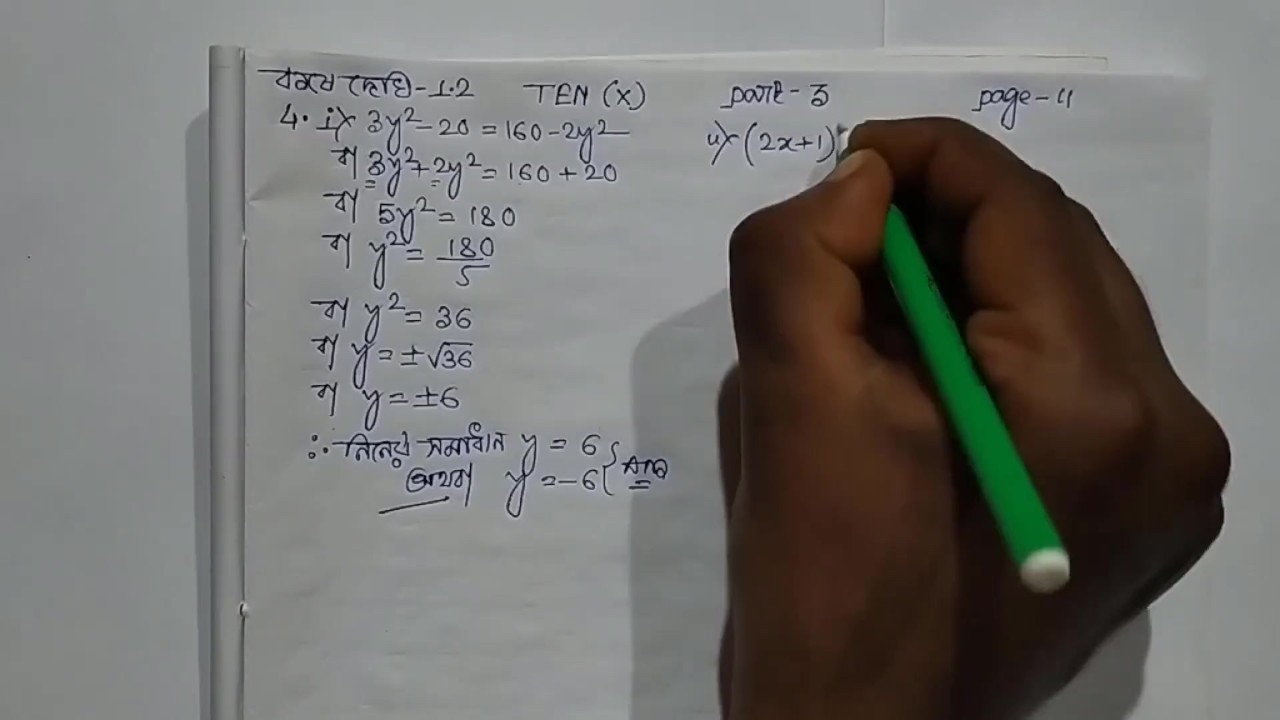 কষে দেখি-1.2 TEN (X) part-3 page-4
4. i) 3y²-20=160-2y²
বা 3y²+2y²=160+20
বা 5y²=180
বা y²=180/5
বা y²=36
বা y=±√36
বা y=±6
∴ নির্ণেয় সমাধান y = 6
অথবা y = -6 } Ans
ii) (2x+1)